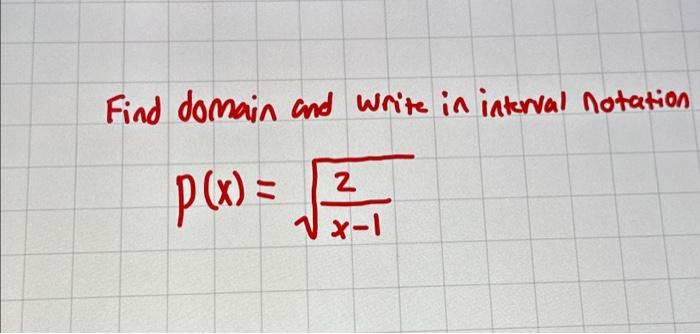 Find domain and write in interval notation
p(x) = √(2/(x-1))